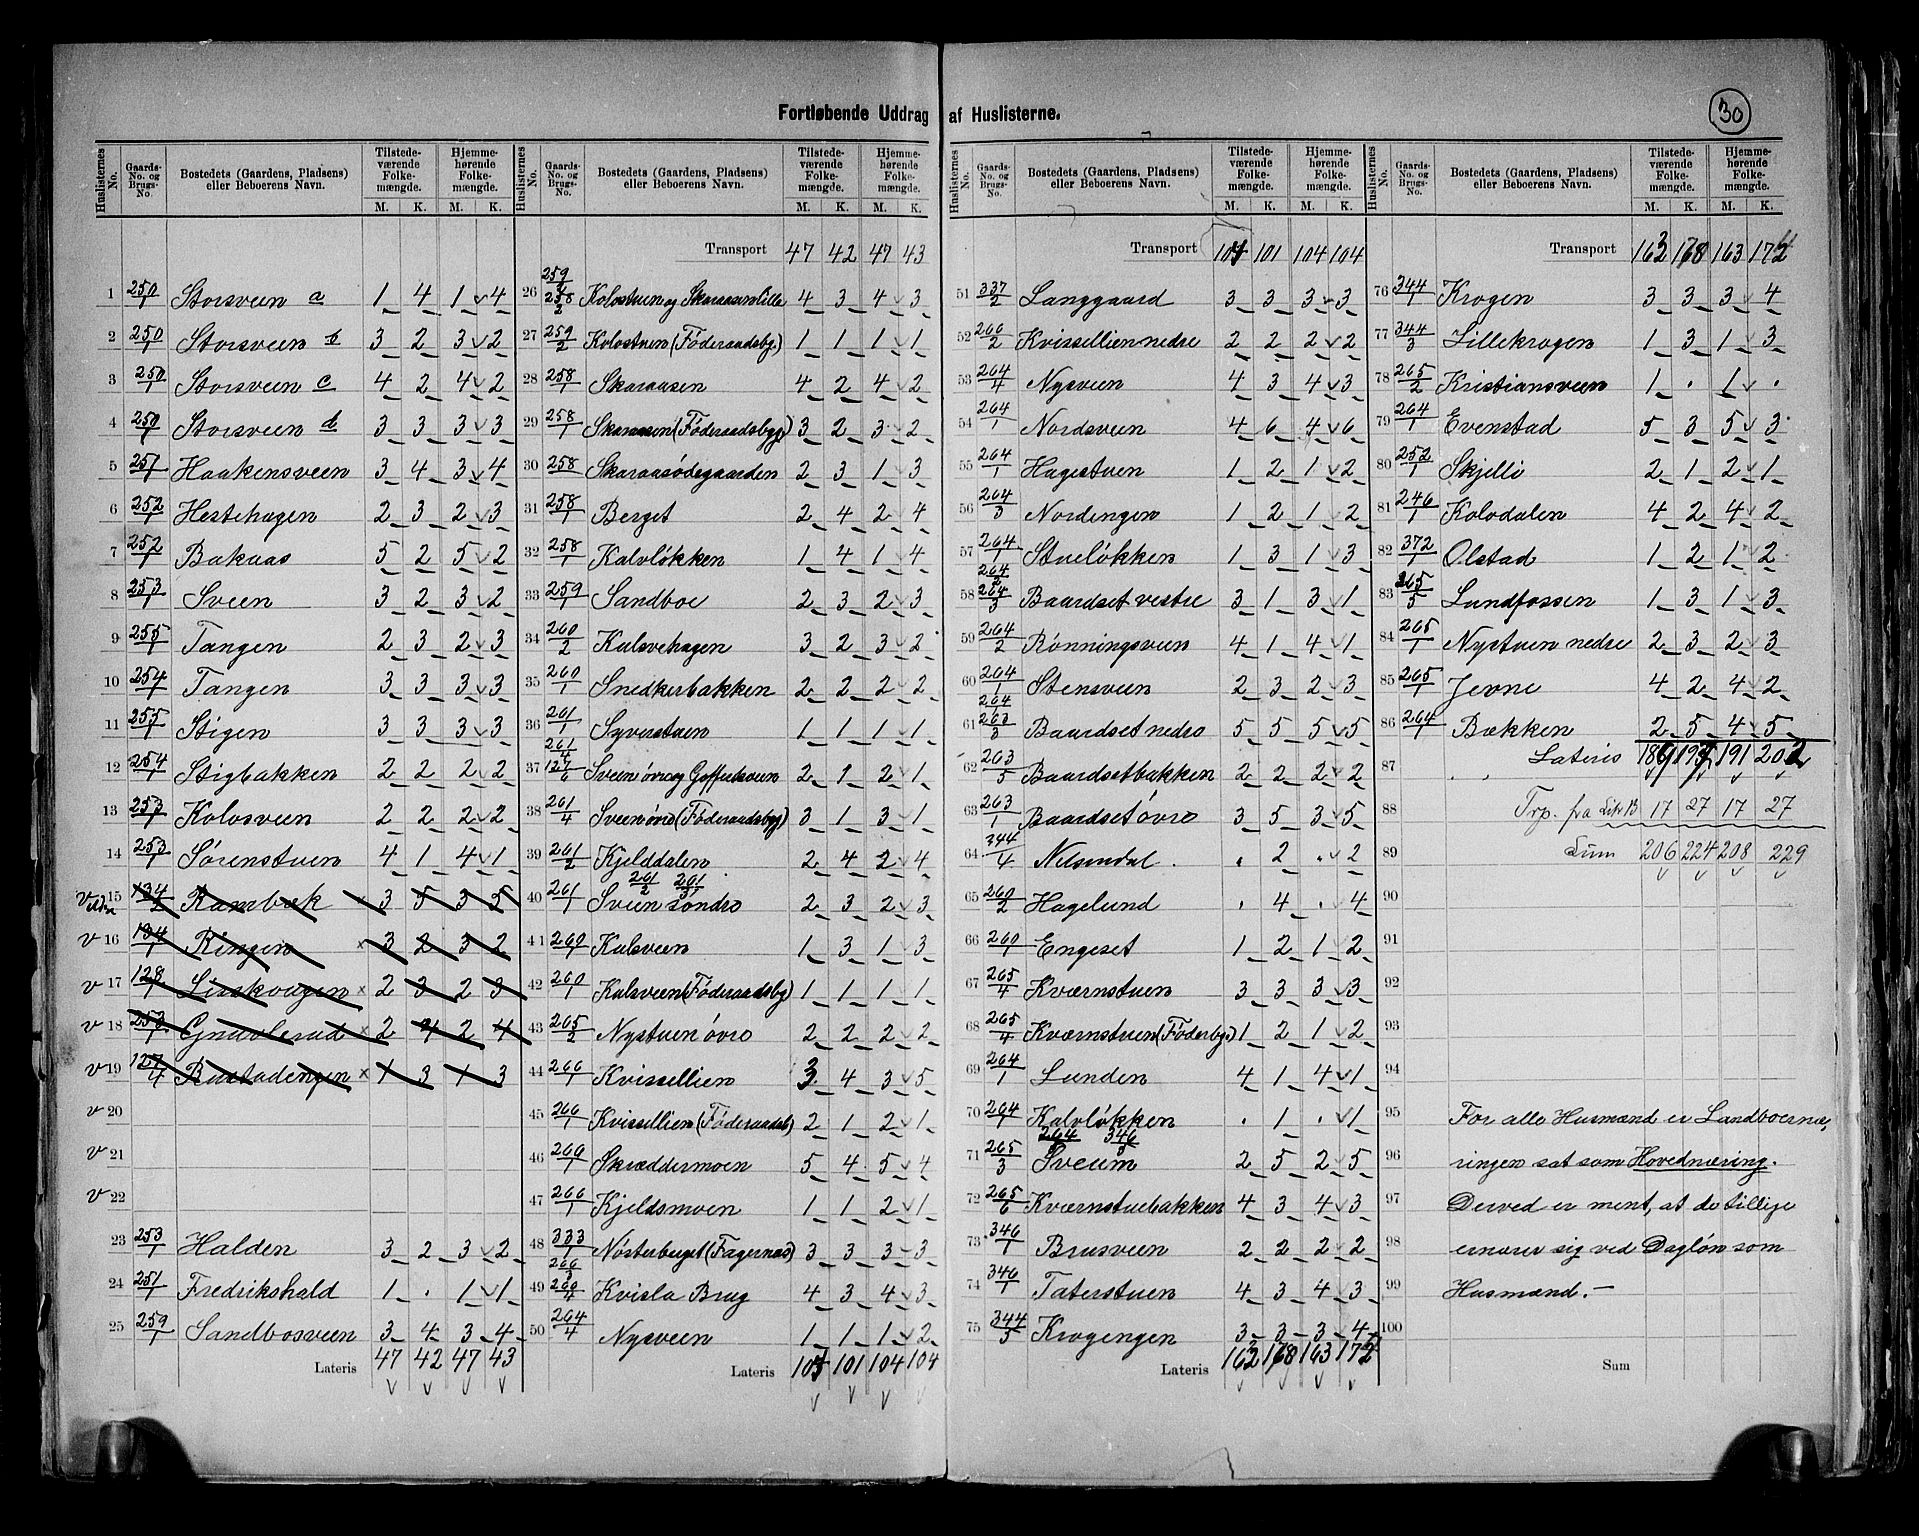 Fortløbende Uddrag af Huslisterne.
30
Huslisternes No.
Gaards-No. og Brugs-No.
Bostedets (Gaardens, Pladsens) eller Beboerens Navn.
Tilstedeværende Folkemængde.
Hjemmehørende Folkemængde.
M. K. M. K.
1 250/1 Storsveen a 1 4 1 4
2 250/1 Storsveen b 3 2 3 2
3 250/1 Storsveen c 4 2 4 2
4 250/1 Storsveen d 3 3 3 3
5 257/1 Haakensveen 3 4 3 4
6 252/1 Hestehagen 2 3 2 3
7 252/1 Bakaas 5 2 5 2
8 253/1 Sveen 3 2 3 2
9 255/1 Tangen 2 3 2 3
10 254/1 Tangen 3 3 3 3
11 255/1 Stigen 3 3 3 3
12 254/1 Stigbakken 2 2 2 2
13 253/1 Kolosveen 2 2 2 2
14 253/1 Sørenstuen 4 1 4 1
15 134/2 Rambæk 3 5 3 5
16 134/1 Ringen 3 2 3 2
17 128/1 Lisskougen 2 3 2 3
18 253/1 Gnavlerud 2 4 2 4
19 127/4 Bustadengen 1 3 1 3
20
21
22
23 253/1 Halden 3 2 3 2
24 251/1 Fredrikshald 1 . 1 1
25 259/1 Sandbosveen 3 4 3 4
Lateris 47 42 47 43
Transport 47 42 47 43
26 259/2 258/2 Kolostuen og Skaraasenlille 4 3 4 3
27 259/2 Kolostuen (Föderaadsbg.) 1 1 1 1
28 258/1 Skaraasen 4 2 4 2
29 258/1 Skaraasen (Föderaadsbyg) 3 2 3 2
30 258/1 Skaraasødegaarden 2 3 1 3
31 258/1 Berget 2 4 2 4
32 258/1 Kalvløkken 1 4 1 4
33 259/1 Sandboe 2 3 2 3
34 260/2 Kalvehagen 3 2 3 2
35 260/1 Snedkerbakken 2 2 2 2
36 261/1 Syverstuen 1 1 1 1
37 261/4 127/6 Sveen övre og Goffertsveen 2 1 2 1
38 261/4 Sveen övre (Föderaadsbyg) 3 1 3 1
39 261/2 Kjelddalen 2 4 2 4
40 261/1 261/2 261/3 Sveen søndre 2 3 2 3
41 260/1 Kalsveen 1 3 1 3
42 260/1 Kalsveen (Föderaadsbg) 1 1 1 1
43 265/2 Nystuen övre 2 2 2 2
44 266/1 Kvissellien 3 4 3 5
45 266/1 Kvissellien (Föderaadsb) 2 1 2 1
46 266/1 Skræddermoen 5 4 5 4
47 266/1 Kjeldsmoen 1 1 2 1
48 333/1 Nösterberget (Fagernæs) 3 3 3 3
49 266/3 Kvisla Brug 4 3 4 3
50 264/4 Nysveen 1 1 1 2
Lateris 101 104 104
Transport 101 104 104
51 337/2 Langgaard 3 3 3 3
52 266/2 Kvissellien nedre 2 2 2 2
53 264/4 Nysveen 4 3 4 3
54 264/1 Nordsveen 4 6 4 6
55 264/1 Hagestuen 1 2 1 2
56 264/3 Nordingen 1 2 1 2
57 264/1 Stueløkken 1 3 1 3
58 264/2 264/3 Baardset vestre 3 1 3 1
59 264/2 Rønningsveen 4 1 4 1
60 264/1 Stensveen 2 3 2 3
61 264/1 263/3 Baardset nedre 5 5 5 5
62 263/5 Baardsetbakken 2 2 2 2
63 263/1 Baardset övre 3 5 3 5
64 344/4 Nilsendal . 2 . 2
65 260/2 Hagelund . 4 . 4
66 260/1 Engeset 1 2 1 2
67 265/4 Kværnstuen 3 3 3 3
68 265/4 Kværnstuen (Föderbyg) 1 2 1 2
69 264/1 Lunden 4 1 4 1
70 264/1 Kalvløkken . 1 . 1
71 265/3 264 346 Sveum 2 5 2 5
72 265/6 Kværnstuebakken 4 3 4 3
73 346/1 Brusveen 2 2 2 2
74 346/1 Taterstuen 4 3 4 3
75 344/5 Krogengen 3 3 3 4
Lateris 162 168 163 172
Transport 162 168 163 172
76 344/1 Krogen 3 3 3 4
77 344/3 Lillekrogen 1 3 1 3
78 265/2 Kristiansveen 1 . 1 .
79 264/1 Evenstad 5 3 5 3
80 252/1 Skjelli 2 1 2 1
81 246/1 Kolodalen 4 2 4 2
82 372/1 Olstad 1 2 1 2
83 265/5 Lundfossen 1 3 1 3
84 265/1 Nystuen nedre 2 3 2 3
85 265/1 Jevne 4 2 4 2
86 264/1 Bækken 2 5 4 5
87 Lateris 189 197 191 202
88 Trp. fra Litr B 17 27 17 27
89 Sum 206 224 208 229
90
91
92
93
94
95 For alle Husmænd er Landboernæ,
96 ringen sat som Hovednæring.
97 Derved er ment, at de tillige
98 ernærer sig ved Dagløn som
99 Husmænd.—
100
Sum